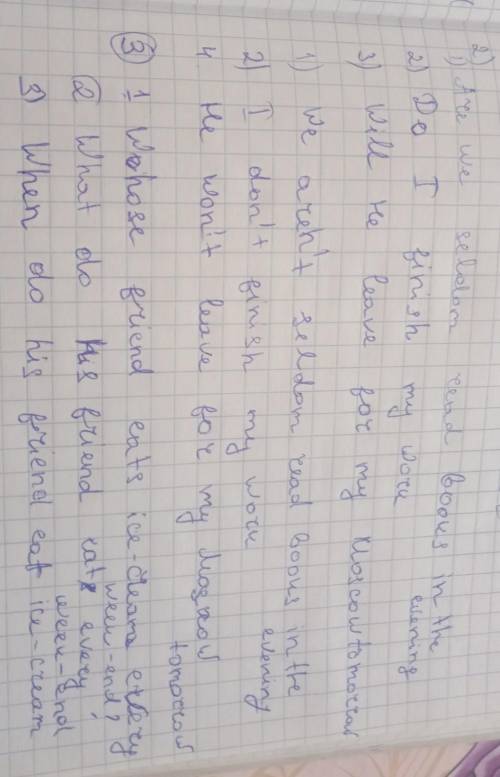 2)
1) Are we seldom read books in the
evening
2) Do I finish my work
3) Will He leave for my Moscow tomorrow
1) We aren't seldom read books in the
evening
2) I don't finish my work
4 He won't leave for my Moskow
tomorrow
3) 1 Whose friend eats ice-cream every
week-end?
2 What do his friend eats every
week-end
3) When do his friend eat ice-cream